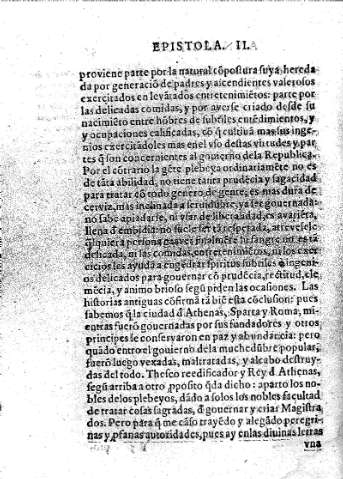 EPISTOLA. II.
proviene parte por la natural cõpostura suya hereda
da por generació de padres y ascendientes valerosos
exercitados en levãtados entretenimiẽtos: parte por
las delicadas comidas, y por averse criado desde su
nacimiẽto entre hõbres de subtiles entẽdimientos, y
y ocupaciones calificadas, cõ q̃ cultivã mas sus inge-
nios exercitãdoles mas en el vso destas virtudes y par
tes q̃ son concernientes al govierno dela Republica.
Por el cõtrario la gẽte plebeya ordinariamẽte no es
de tãta abilidad, no tiene tanta prudẽcia y sagacidad
para tratar cõ todo genero de gente, es mas dura de
cerviz, mas inclinada a servidũbre, ya ser governada:
no sabe apiadarse, ni vsar de liberalidad, es avariẽta,
llena d̃ embidia: no suele ser tã respetada, atrevesele
q̃lquiera persona
delicada, ni las comidas, entretenimiẽtos, ni los exer
cicios les ayuda a engẽdrar spiritus subtiles q̃ ingeni
os delicados para governar cõ prudẽcia, rectitud, cle
mẽcia, y animo brioso segũ piden las ocasiones. Las
historias antiguas cõfirmã tã biẽ esta cõclusion: pues
sabemos q̃ la ciudad d̃ Athenas, Sparta y Roma, mi-
entras fuerõ governadas por sus fundadores y otros
principes se conservaron en paz y abundancia: pero
quãdo entro el govierno dela muchedũbre popular,
fuerõ luego vexadas, maltratadas, y al cabo destruy-
das del todo. Theseo reedificador y Rey d̃ Athenas,
segũ arriba a otro ꝓposito q̃da dicho: aparto los no-
bles delos plebeyos, dãdo a solos los nobles facultad
de tratar cosas sagradas, d̃ governar y criar Magistra
dos. Pero para q̃ me cãso trayẽdo y alegãdo peregri-
nas y ꝓfanas autoridades, pues ay en las divinas letras
vna